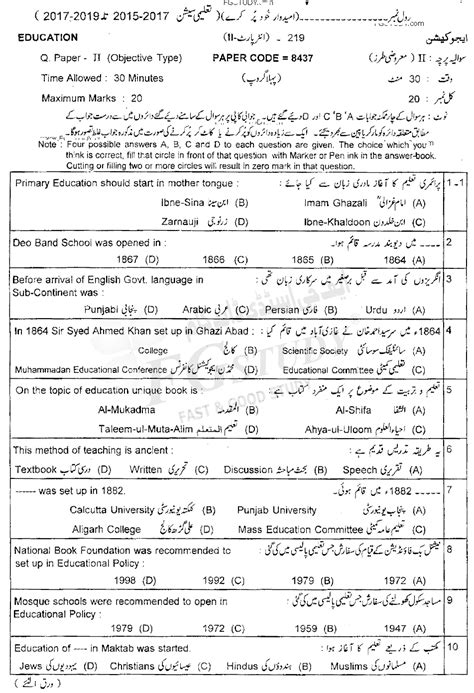 رول نمبر (امیدوار خود پُر کرے) (تعلیمی سیشن 2015-2017 تا 2017-2019)
EDUCATION 219 - (انٹر پارٹ-II) ایجوکیشن
Q. Paper - II (Objective Type) PAPER CODE = 8437 سوالیہ پرچہ : II (معروضی طرز)
Time Allowed : 30 Minutes (پہلا گروپ) وقت : 30 منٹ
Maximum Marks : 20 کل نمبر : 20
Note : Four possible answers A, B, C and D to each question are given. The choice which you
think is correct, fill that circle in front of that question with Marker or Pen ink in the answer-book.
Cutting or filling two or more circles will result in zero mark in that question.
Primary Education should start in mother tongue : پرائمری تعلیم کا آغاز مادری زبان سے کیا جائے : 1-1
Ibne-Sina ابن سینا (B) Imam Ghazali امام غزالیؒ (A)
Zarnauji زرنوجی (D) Ibne-Khaldoon ابن خلدون (C)
Deo Band School was opened in : میں دیوبند مدرسہ قائم ہوا۔ 2
1867 (D) 1866 (C) 1865 (B) 1864 (A)
Before arrival of English Govt. language in انگریزوں کی آمد سے قبل برصغیر میں سرکاری زبان تھی : 3
Sub-Continent was :
Punjabi پنجابی (D) Arabic عربی (C) Persian فارسی (B) Urdu اردو (A)
In 1864 Sir Syed Ahmed Khan set up in Ghazi Abad : 1864ء میں سرسید احمد خان نے غازی آباد میں قائم کیا : 4
College کالج (B) Scientific Society سائنٹیفک سوسائٹی (A)
Muhammadan Educational Conference محمڈن ایجوکیشنل کانفرنس (D) Educational Committee تعلیمی کمیٹی (C)
On the topic of education unique book is : تعلیم و تربیت کے موضوع پر ایک منفرد کتاب ہے : 5
Al-Mukadma المقدمہ (B) Al-Shifa الشفا (A)
Taleem-ul-Muta-Alim تعلیم المتعلم (D) Ahya-ul-Uloom احیاء العلوم (C)
This method of teaching is ancient : یہ طریقہ تدریس قدیم ہے : 6
Textbook درسی کتاب (D) Written تحریری (C) Discussion بحث مباحثہ (B) Speech تقریری (A)
------ was set up in 1882. 1882ء میں قائم ہوئی۔ 7
Calcutta University کلکتہ یونیورسٹی (B) Punjab University پنجاب یونیورسٹی (A)
Aligarh College علی گڑھ کالج (D) Mass Education Committee تعلیم عامہ کمیٹی (C)
National Book Foundation was recommended to نیشنل بک فاؤنڈیشن کے قیام کی سفارش جس تعلیمی پالیسی میں کی گئی : 8
set up in Educational Policy :
1998 (D) 1992 (C) 1979 (B) 1972 (A)
Mosque schools were recommended to open in مساجد سکول کھولنے کی سفارش جس تعلیمی پالیسی میں کی گئی : 9
Educational Policy :
1979 (D) 1972 (C) 1959 (B) 1947 (A)
Education of ---- in Maktab was started. مکتب کے ذریعے تعلیم کا آغاز ہوا۔ 10
Jews یہودیوں کی (D) Christians عیسائیوں کی (C) Hindus ہندوؤں کی (B) Muslims مسلمانوں کی (A)
(ورق الٹئے)
FAST & GOOD STUDY